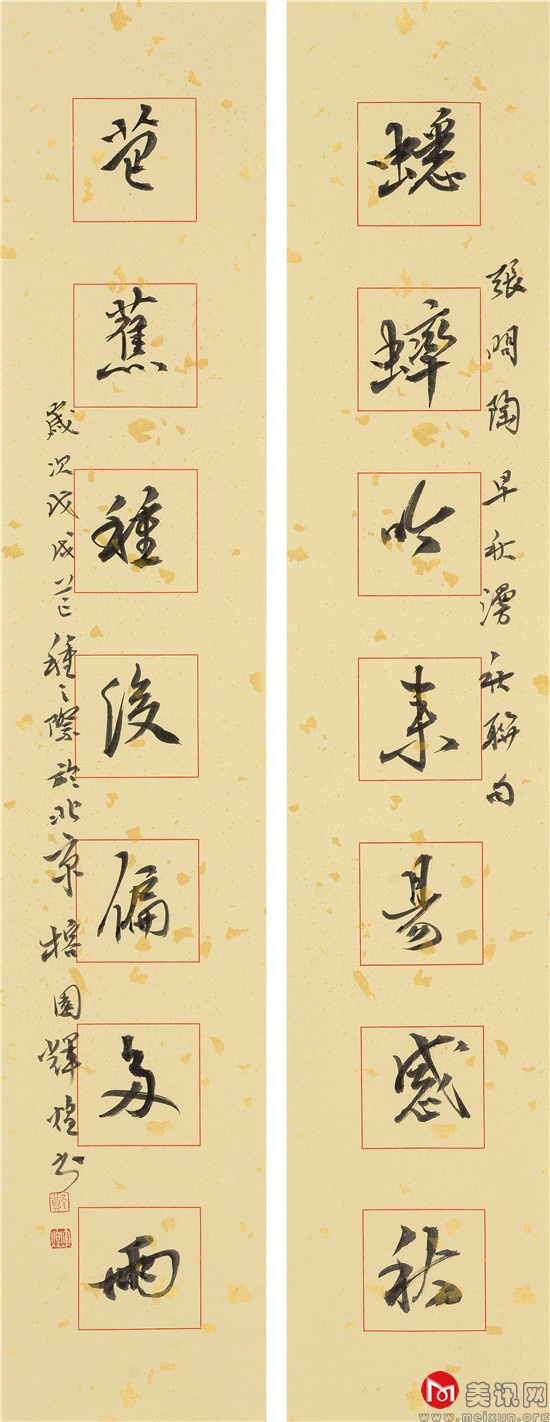 蟋蟀吟来易感秋
張問陶早秋漫秋聯句
芭蕉種後偏多雨
歲次戊戌芒種之際於北京榕園輝煌书
美讯网
www.meixun.org